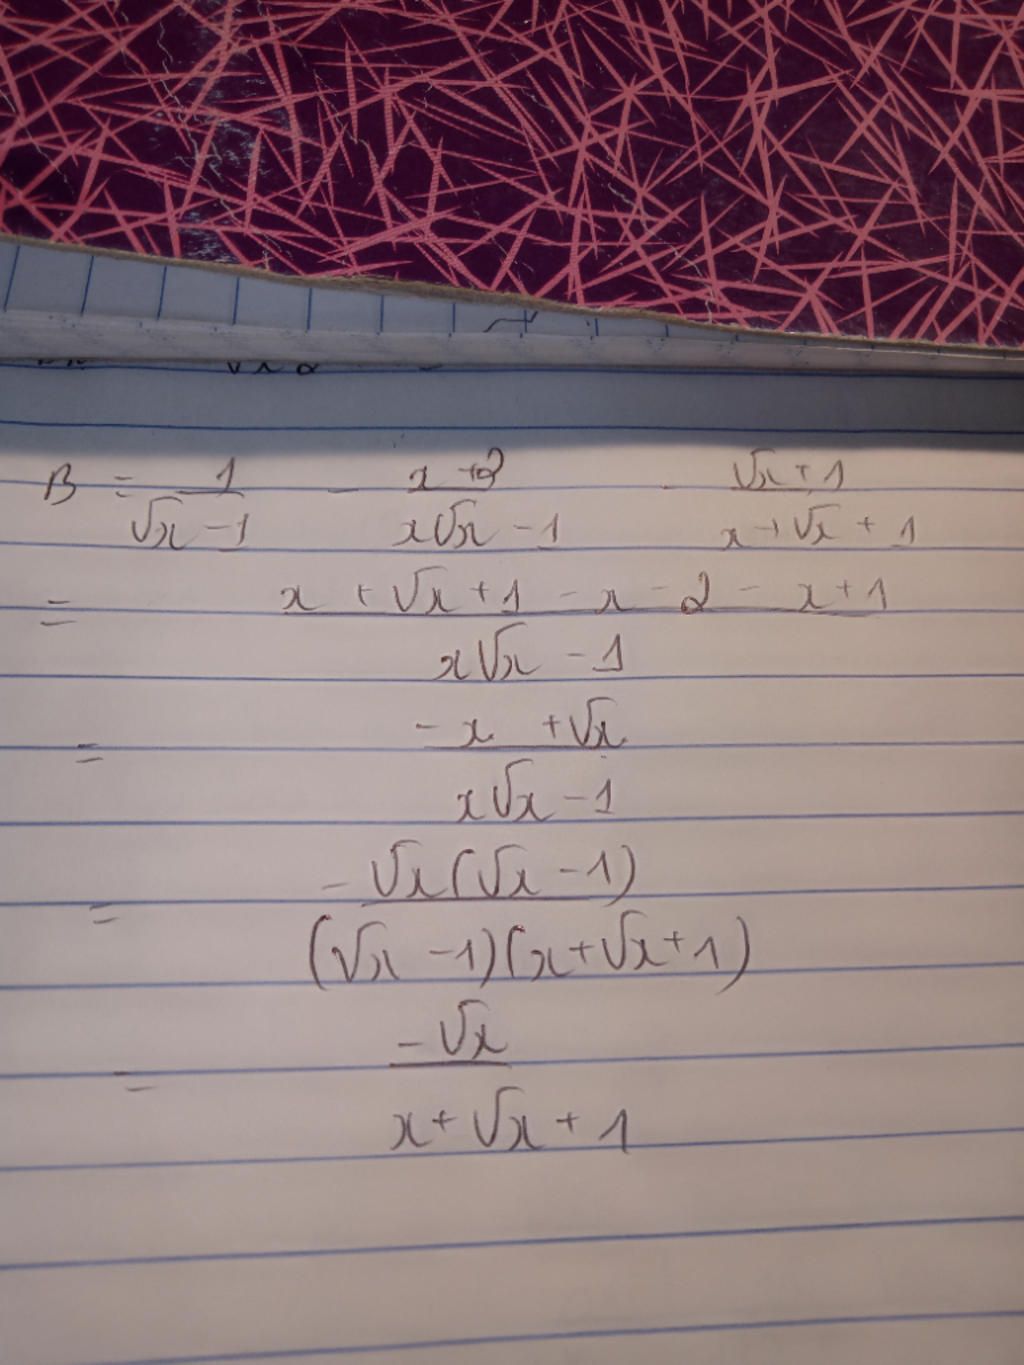 B = 1/(√x - 1) - (x + 2)/(x√x - 1) - (√x + 1)/(x + √x + 1)
= (x + √x + 1 - x - 2 - x + 1)/(x√x - 1)
= (-x + √x)/(x√x - 1)
= -√x(√x - 1)/((√x - 1)(x + √x + 1))
= -√x/(x + √x + 1)